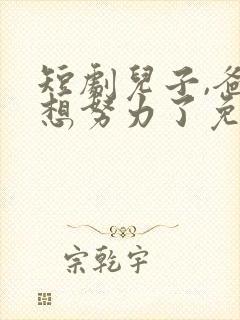 短劇兒子,爸
想努力了免
宗乾宇